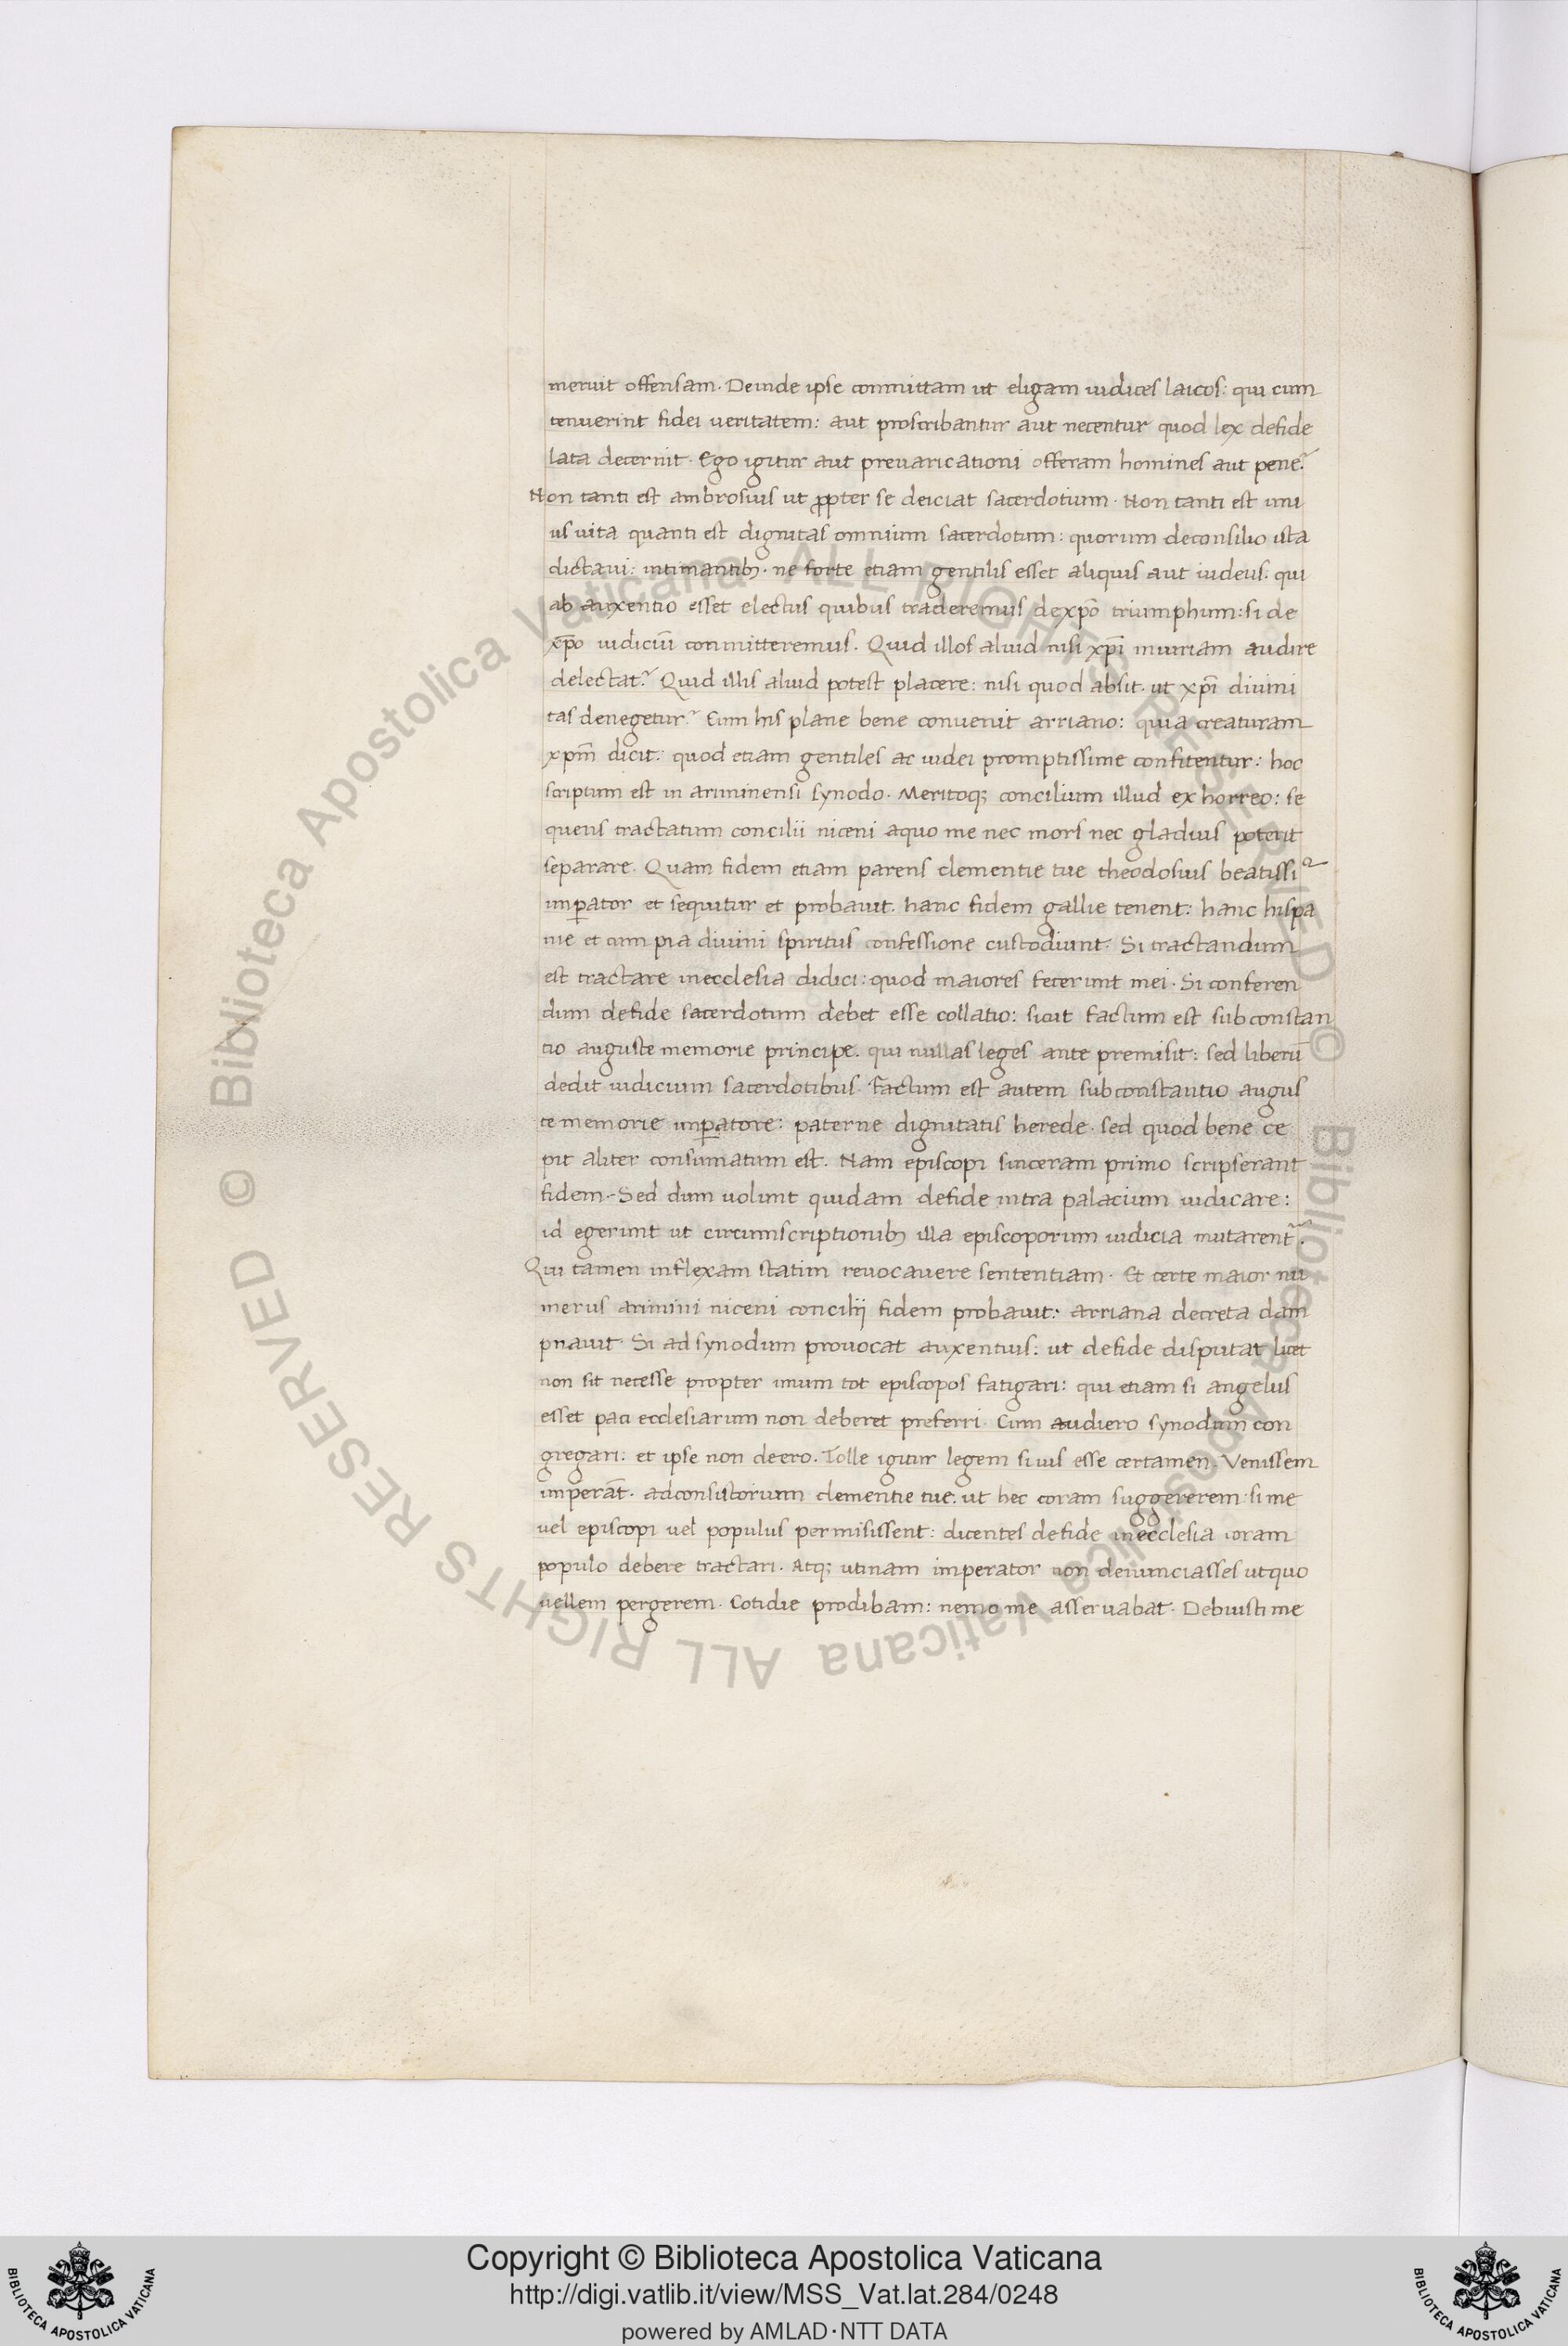 meruit offensam. Deinde ipse committam ut eligam iudices laicos: qui cum
tenuerint fidei ueritatem: aut proscribantur aut necentur quod lex defide
lata decernit. Ego igitur aut preuaricationi offeram homines aut pene?
Non tanti est ambrosius ut ꝓpter se deiciat sacerdotium. Non tanti est uni
us uita quanti est dignitas omnium sacerdotum: quorum deconsilio ista
dictaui: intimantibꝫ. ne forte etiam gentilis esset aliquis aut iudeus. qui
ab auxentio esset electus quibus traderemus dexp̄o triumphum: si de
xp̄o iudiciū committeremus. Quid illos aliud nisi xp̄i iniuriam audire
delectat? Quid illis aliud potest placere: nisi quod absit. ut xp̄i diuini
tas denegetur? Cum his plane bene conuenit arriano: quia creaturam
xpm̄ dicit: quod etiam gentiles ac iudei promptissime confitentur: hoc
scriptum est in ariminensi synodo. Meritoqꝫ concilium illud exhorreo: se
quens tractatum concilii niceni aquo me nec mors nec gladius poterit
separare. Quam fidem etiam parens clementie tue theodosius beatissi
imꝑator et sequitur et probauit. hanc fidem gallie tenent: hanc hispa
nie et cum pia diuini spiritus confessione custodiunt. Si tractandum
est tractare inecclesia didici: quod maiores fecerunt mei. Si conferen
dum defide sacerdotum debet esse collatio: sicut factum est sub constan
tio auguste memorie principe. qui nullas leges ante premisit: sed liberū
dedit iudicium sacerdotibus. Factum est autem sub constantio augus
te memorie imꝑatore: paterne dignitatis herede. sed quod bene ce
pit aliter consumatum est. Nam episcopi sinceram primo scripserant
fidem. Sed dum uolunt quidam defide intra palacium iudicare:
id egerunt ut circumscriptionibꝫ illa episcoporum iudicia mutarent̃.
Qui tamen inflexam statim reuocauere sententiam. Et certe maior nu
merus arimini niceni concilij fidem probauit: arriana decreta dam
pnauit. Si ad synodum prouocat auxentius: ut defide disputat licet
non sit necesse propter unum tot episcopos fatigari: qui etiam si angelus
esset paci ecclesiarum non deberet preferri. Cum audiero synodum con
gregari: et ipse non deero. Tolle igitur legem si uis esse certamen. Venissem
imperat̄. adconsistorium clementie tue. ut hec coram suggererem: si me
uel episcopi uel populus permisissent: dicentes defide inecclesia coram
populo debere tractari. Atqꝫ utinam imperator non denunciasses utquo
uellem pergerem. Cotidie prodibam: nemo me asseruabat. Debuisti me
© Biblioteca Apostolica Vaticana ALL RIGHTS RESERVED
© Biblioteca Apostolica Vaticana ALL RIGHTS RESERVED
Copyright © Biblioteca Apostolica Vaticana
http://digi.vatlib.it/view/MSS_Vat.lat.284/0248
powered by AMLAD·NTT DATA
BIBLIOTECA APOSTOLICA VATICANA
BIBLIOTECA APOSTOLICA VATICANA